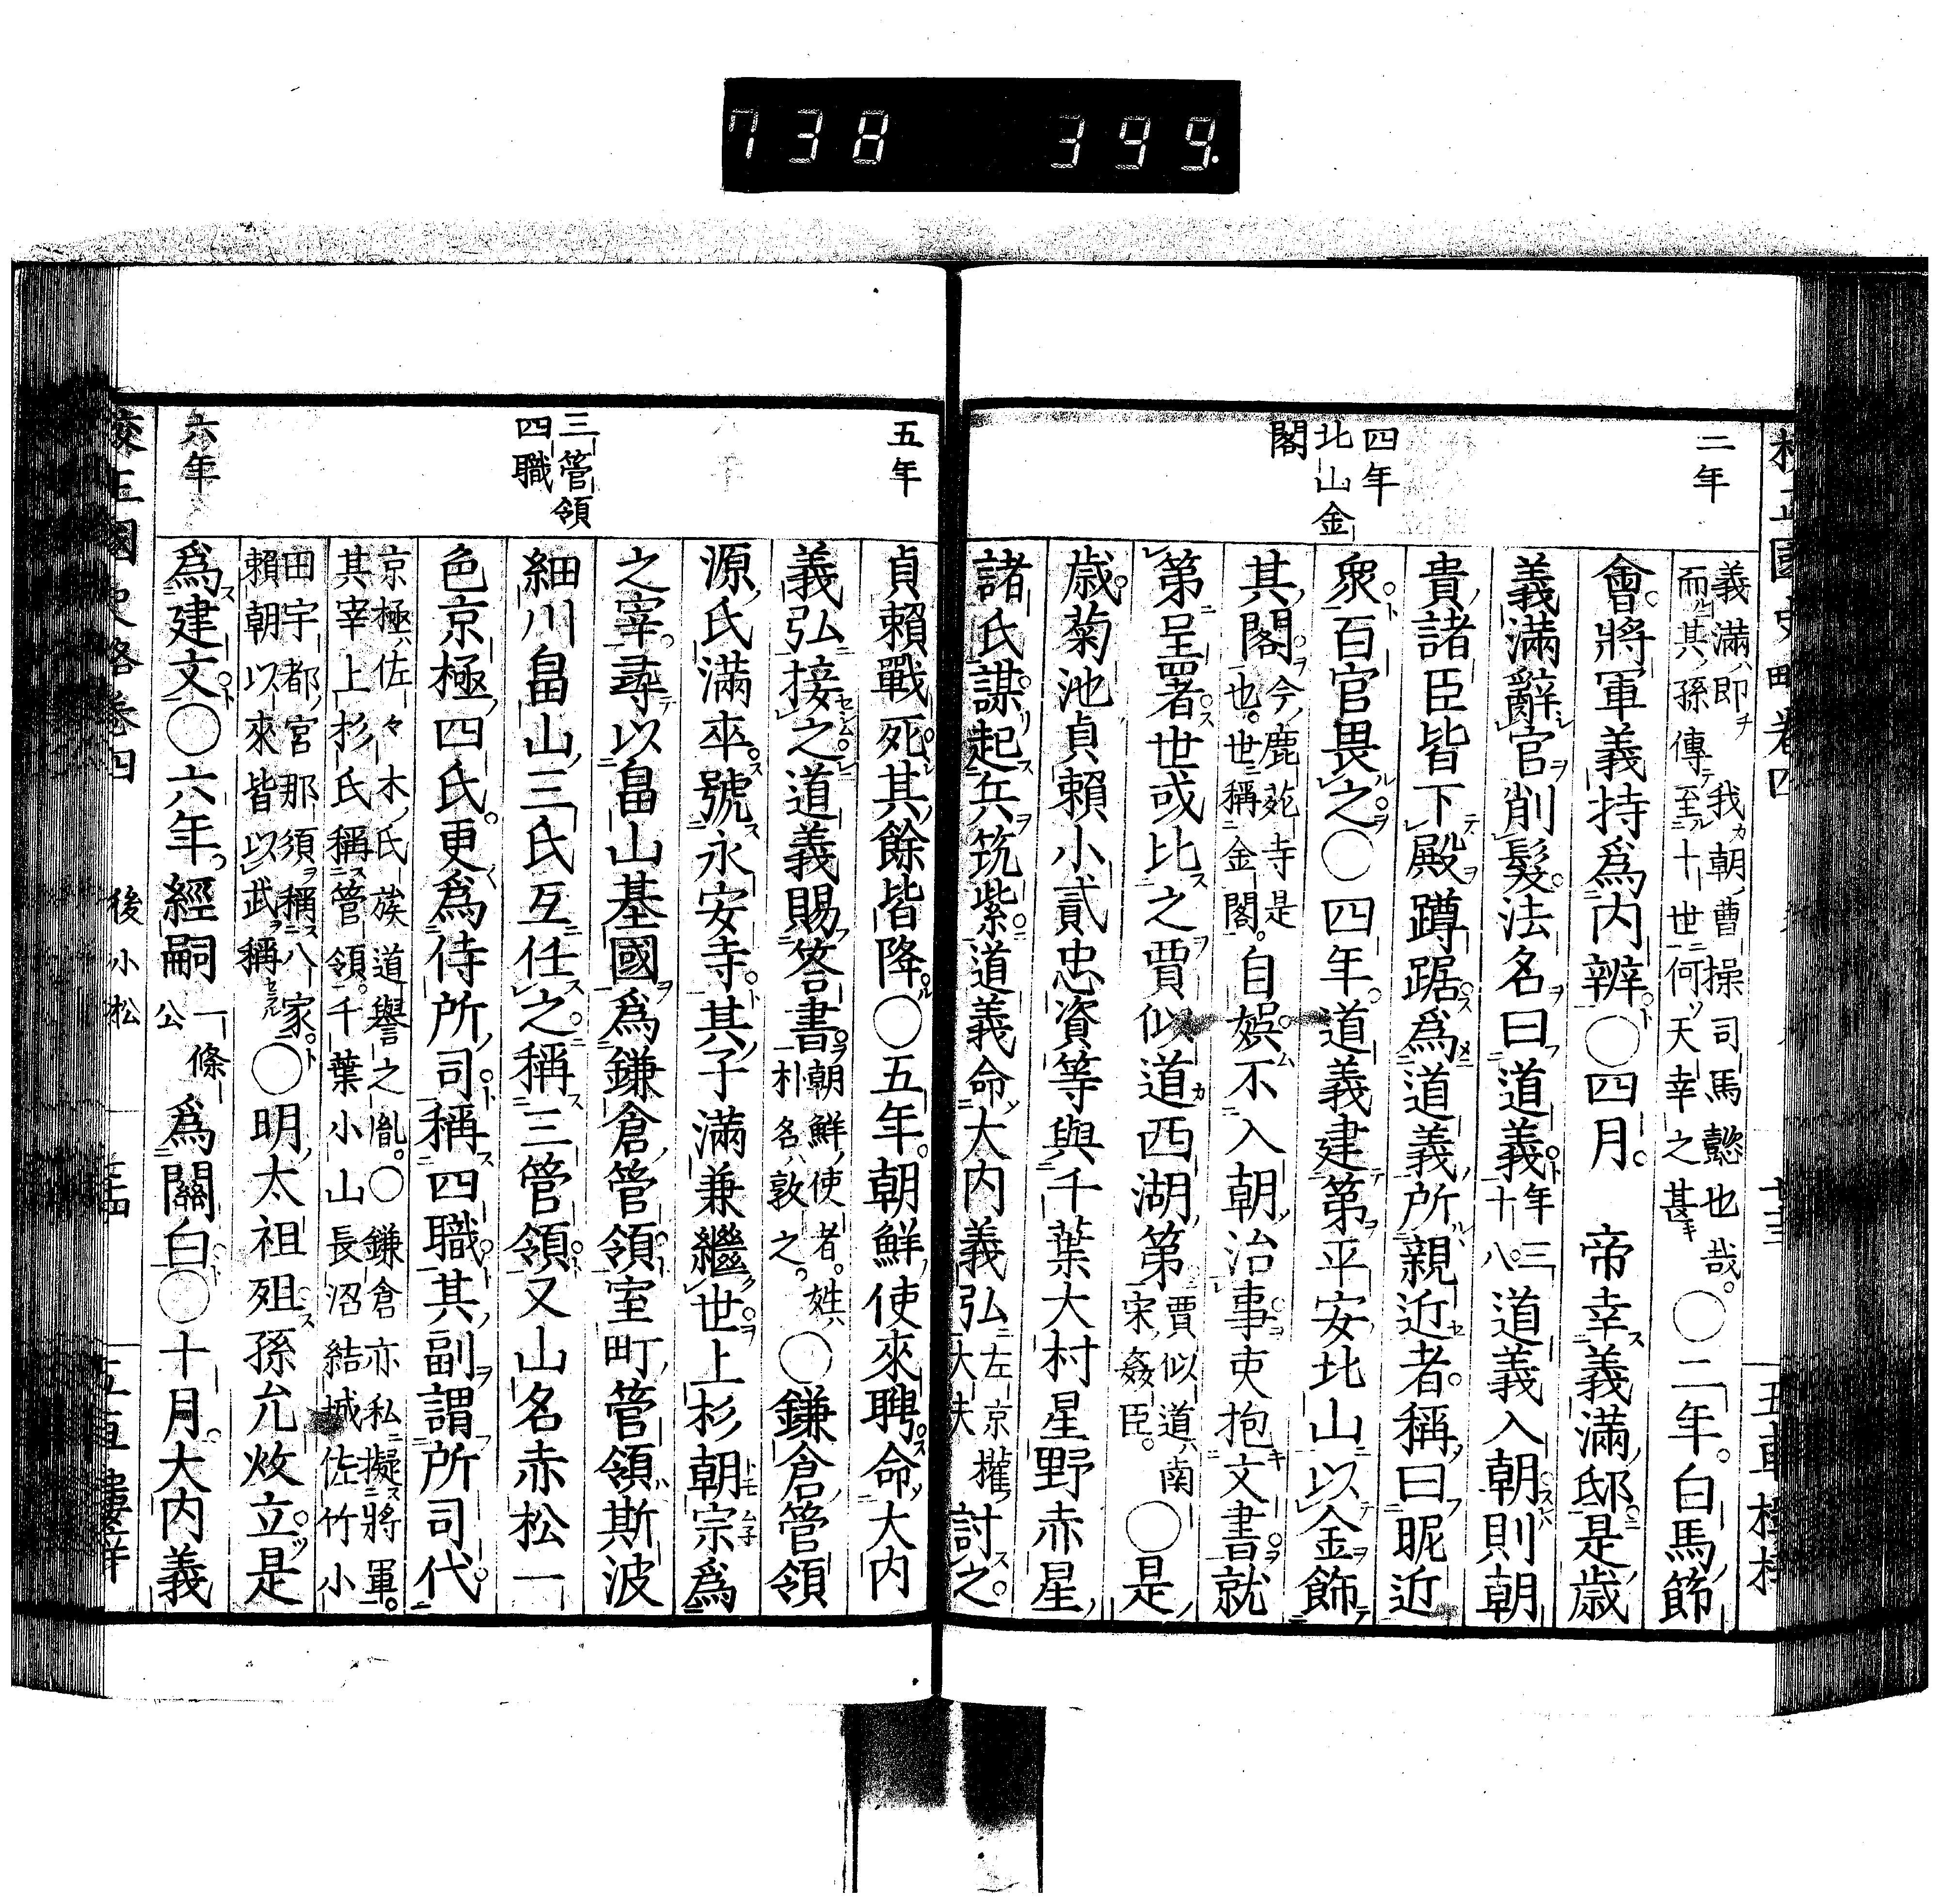 738 399.
二年
四年
北山金
閣
義滿即 我朝曹操司馬懿也哉
而其孫傳至十世何天幸之甚
〇二年。白馬節
會。將軍義持爲内辨。〇四月。 帝幸義滿邸是歳
義滿辭官削髮。法名曰道義年三
十八。道義入朝則朝
貴諸臣皆下殿蹲踞爲道義所親近者。稱曰昵近
衆。百官畏之〇四年。道義建第平安北山以金飾
其閣今鹿苑寺是
也。世稱金閣。自娯不入朝治事吏抱文書就
第呈署。世或比之賈似道西湖第賈似道南
宋姦臣。〇是
歳。菊池貞賴小貳忠資等與千葉大村星野赤星
諸氏謀起兵筑紫道義命大内義弘左京權
大夫討之。
五年
三管領
四職
六年
貞賴戰死其餘皆降〇五年。朝鮮使來聘命大内
義弘接之道義賜答書朝鮮使者。姓
朴名敦之。〇鎌倉管領
源氏滿卒號永安寺其子滿兼繼世上杉朝宗爲
之宰尋以畠山基國爲鎌倉管領室町管領斯波
細川畠山三氏互任之稱三管領又山名赤松一
色京極四氏。更爲侍所司稱四職其副謂所司代。
京極佐々木氏族道譽之胤。〇鎌倉亦私擬將軍。
其宰上杉氏稱管領。千葉小山長沼結城佐竹小
田宇都宮那須稱八家
賴朝以來皆以武稱〇明太祖殂孫允炆立是
爲建文〇六年。經嗣一條
公爲關白〇十月。大内義
後小松